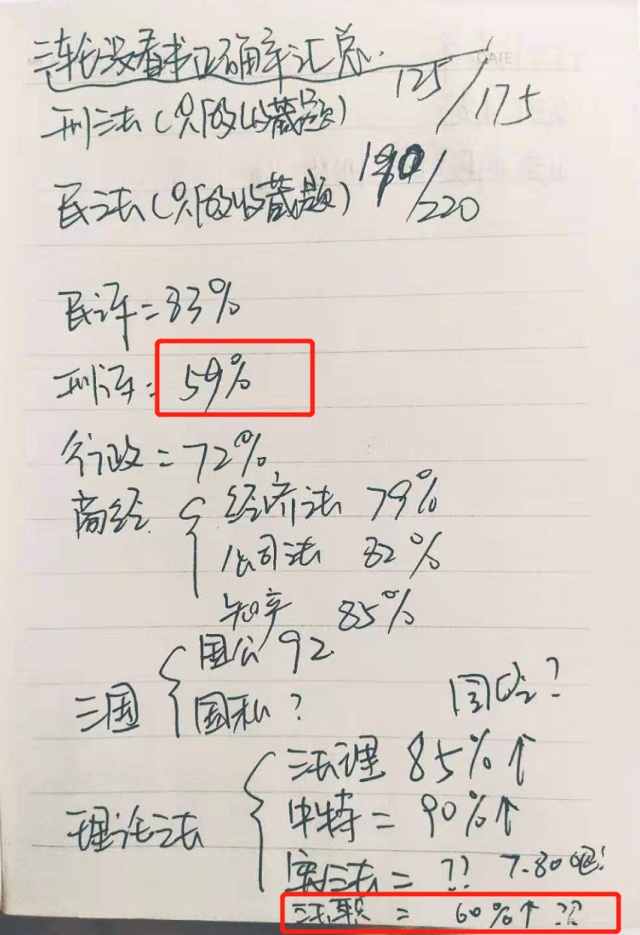 三轮没看书正确率汇总.
刑法(只做收藏题) 125/175
民法(只做收藏题) 190/220
民诉=83%
刑诉=59%
行政=72%
商经 经济法 79%
公司法 82%
知产 85%
三国 国公 92
国私 ?
国经?
理论法 法理 85%↑
中特=90%↑
宪法=?? 7.80吧!
法职=60%↑??